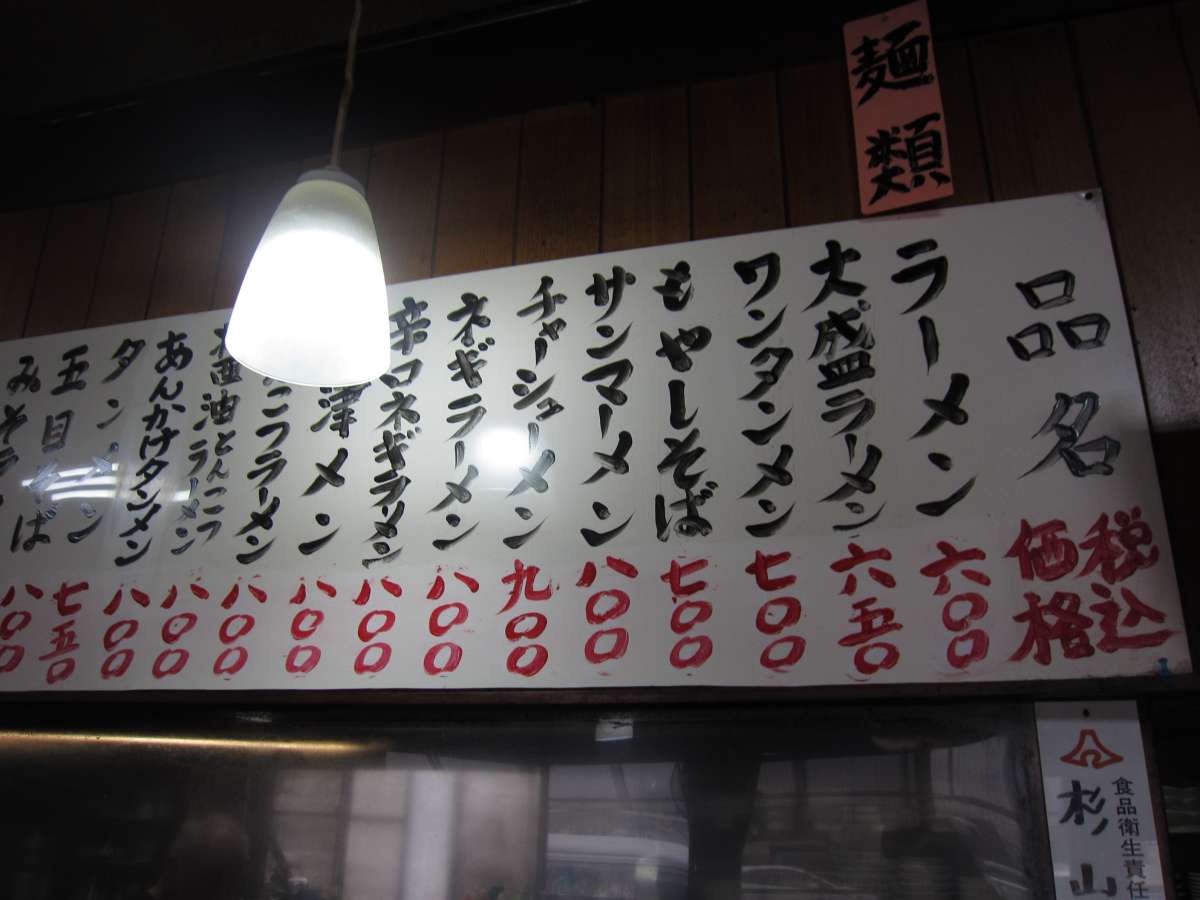 麺類
品名
税込
価格
ラーメン 六〇〇
大盛ラーメン 六五〇
ワンタンメン 七〇〇
もやしそば 七〇〇
サンマーメン 八〇〇
チャーシューメン 九〇〇
ネギラーメン 八〇〇
辛口ネギラーメン 八〇〇
津メン 八〇〇
こつラーメン 八〇〇
醤油とんこつラーメン 八〇〇
あんかけタンメン 八〇〇
タンメン 八〇〇
五目そば 七五〇
みそラ 八〇〇
食品衛生責任
杉山